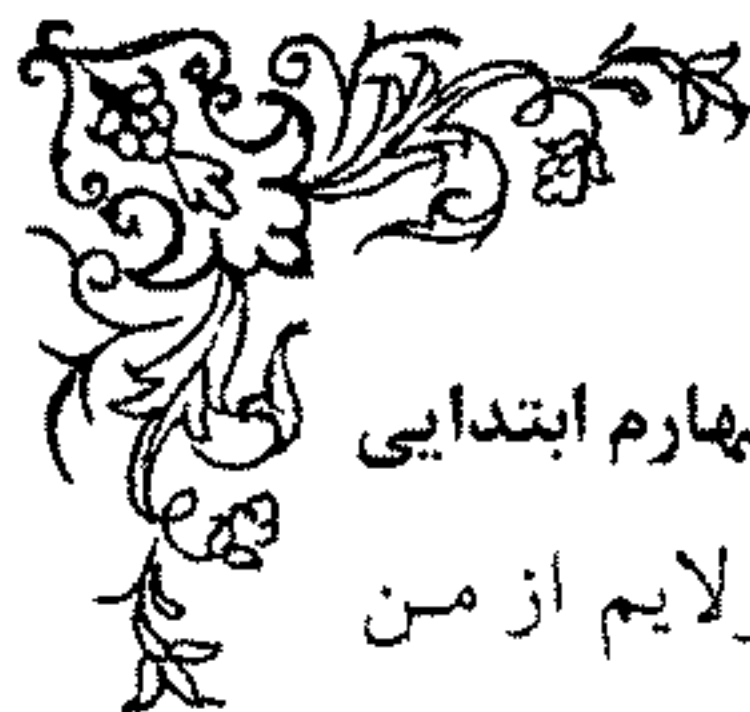 چهارم ابتدایی
لایم از من